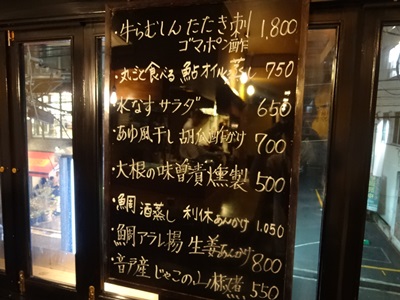 ・牛らむしん たたき刺 1,800
ゴマポン酢
・丸ごと食べる 鮎オイル蒸し 750
・水なす サラダ 650
・あゆ風干し 胡瓜酢がけ 700
・大根の味噌漬 燻製 500
・鯛 酒蒸し 利休あんかけ 1.050
・鯛アラレ揚 生姜あんかけ 800
・音戸産 じゃこの山椒煮 550